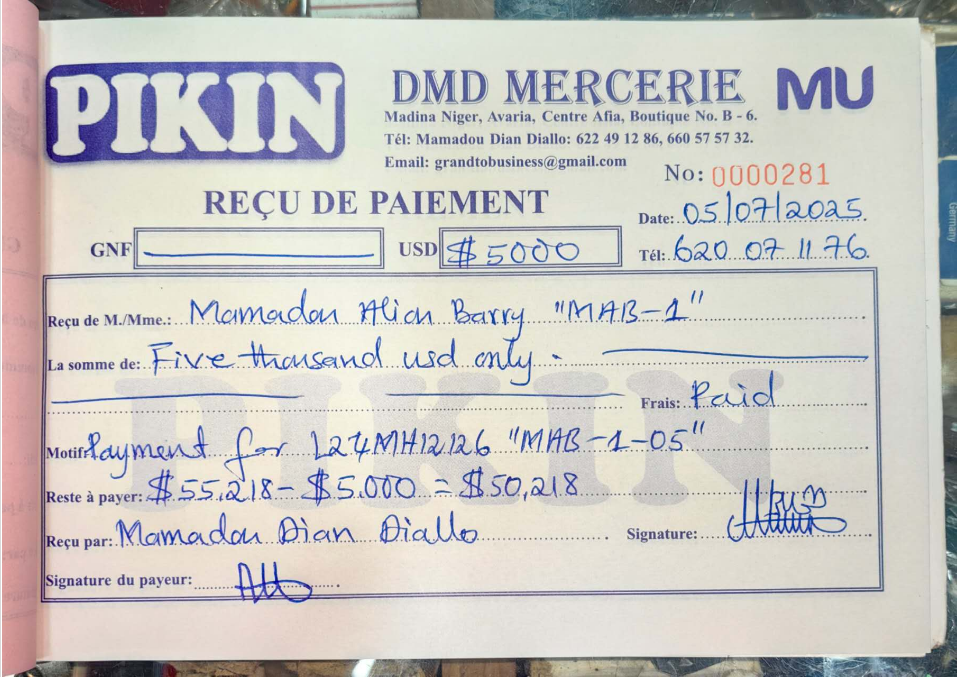 PIKIN
DMD MERCERIE
MU
Madina Niger, Avaria, Centre Afia, Boutique No. B - 6.
Tél: Mamadou Dian Diallo: 622 49 12 86, 660 57 57 32.
Email: grandtobusiness@gmail.com
No: 0000281
REÇU DE PAIEMENT
Date: 05/07/2025
GNF USD $5000
Tél: 620 07 11 76
Reçu de M./Mme.: Mamadou Alion Barry "MAB-1"
La somme de: Five thousand usd only.
Frais: Paid
Motif: Payment for L24MH12126 "MAB-1-05"
Reste à payer: $55,218 - $5.000 = $50,218
Reçu par: Mamadou Dian Diallo Signature:
Signature du payeur:
PIKIN
Germany